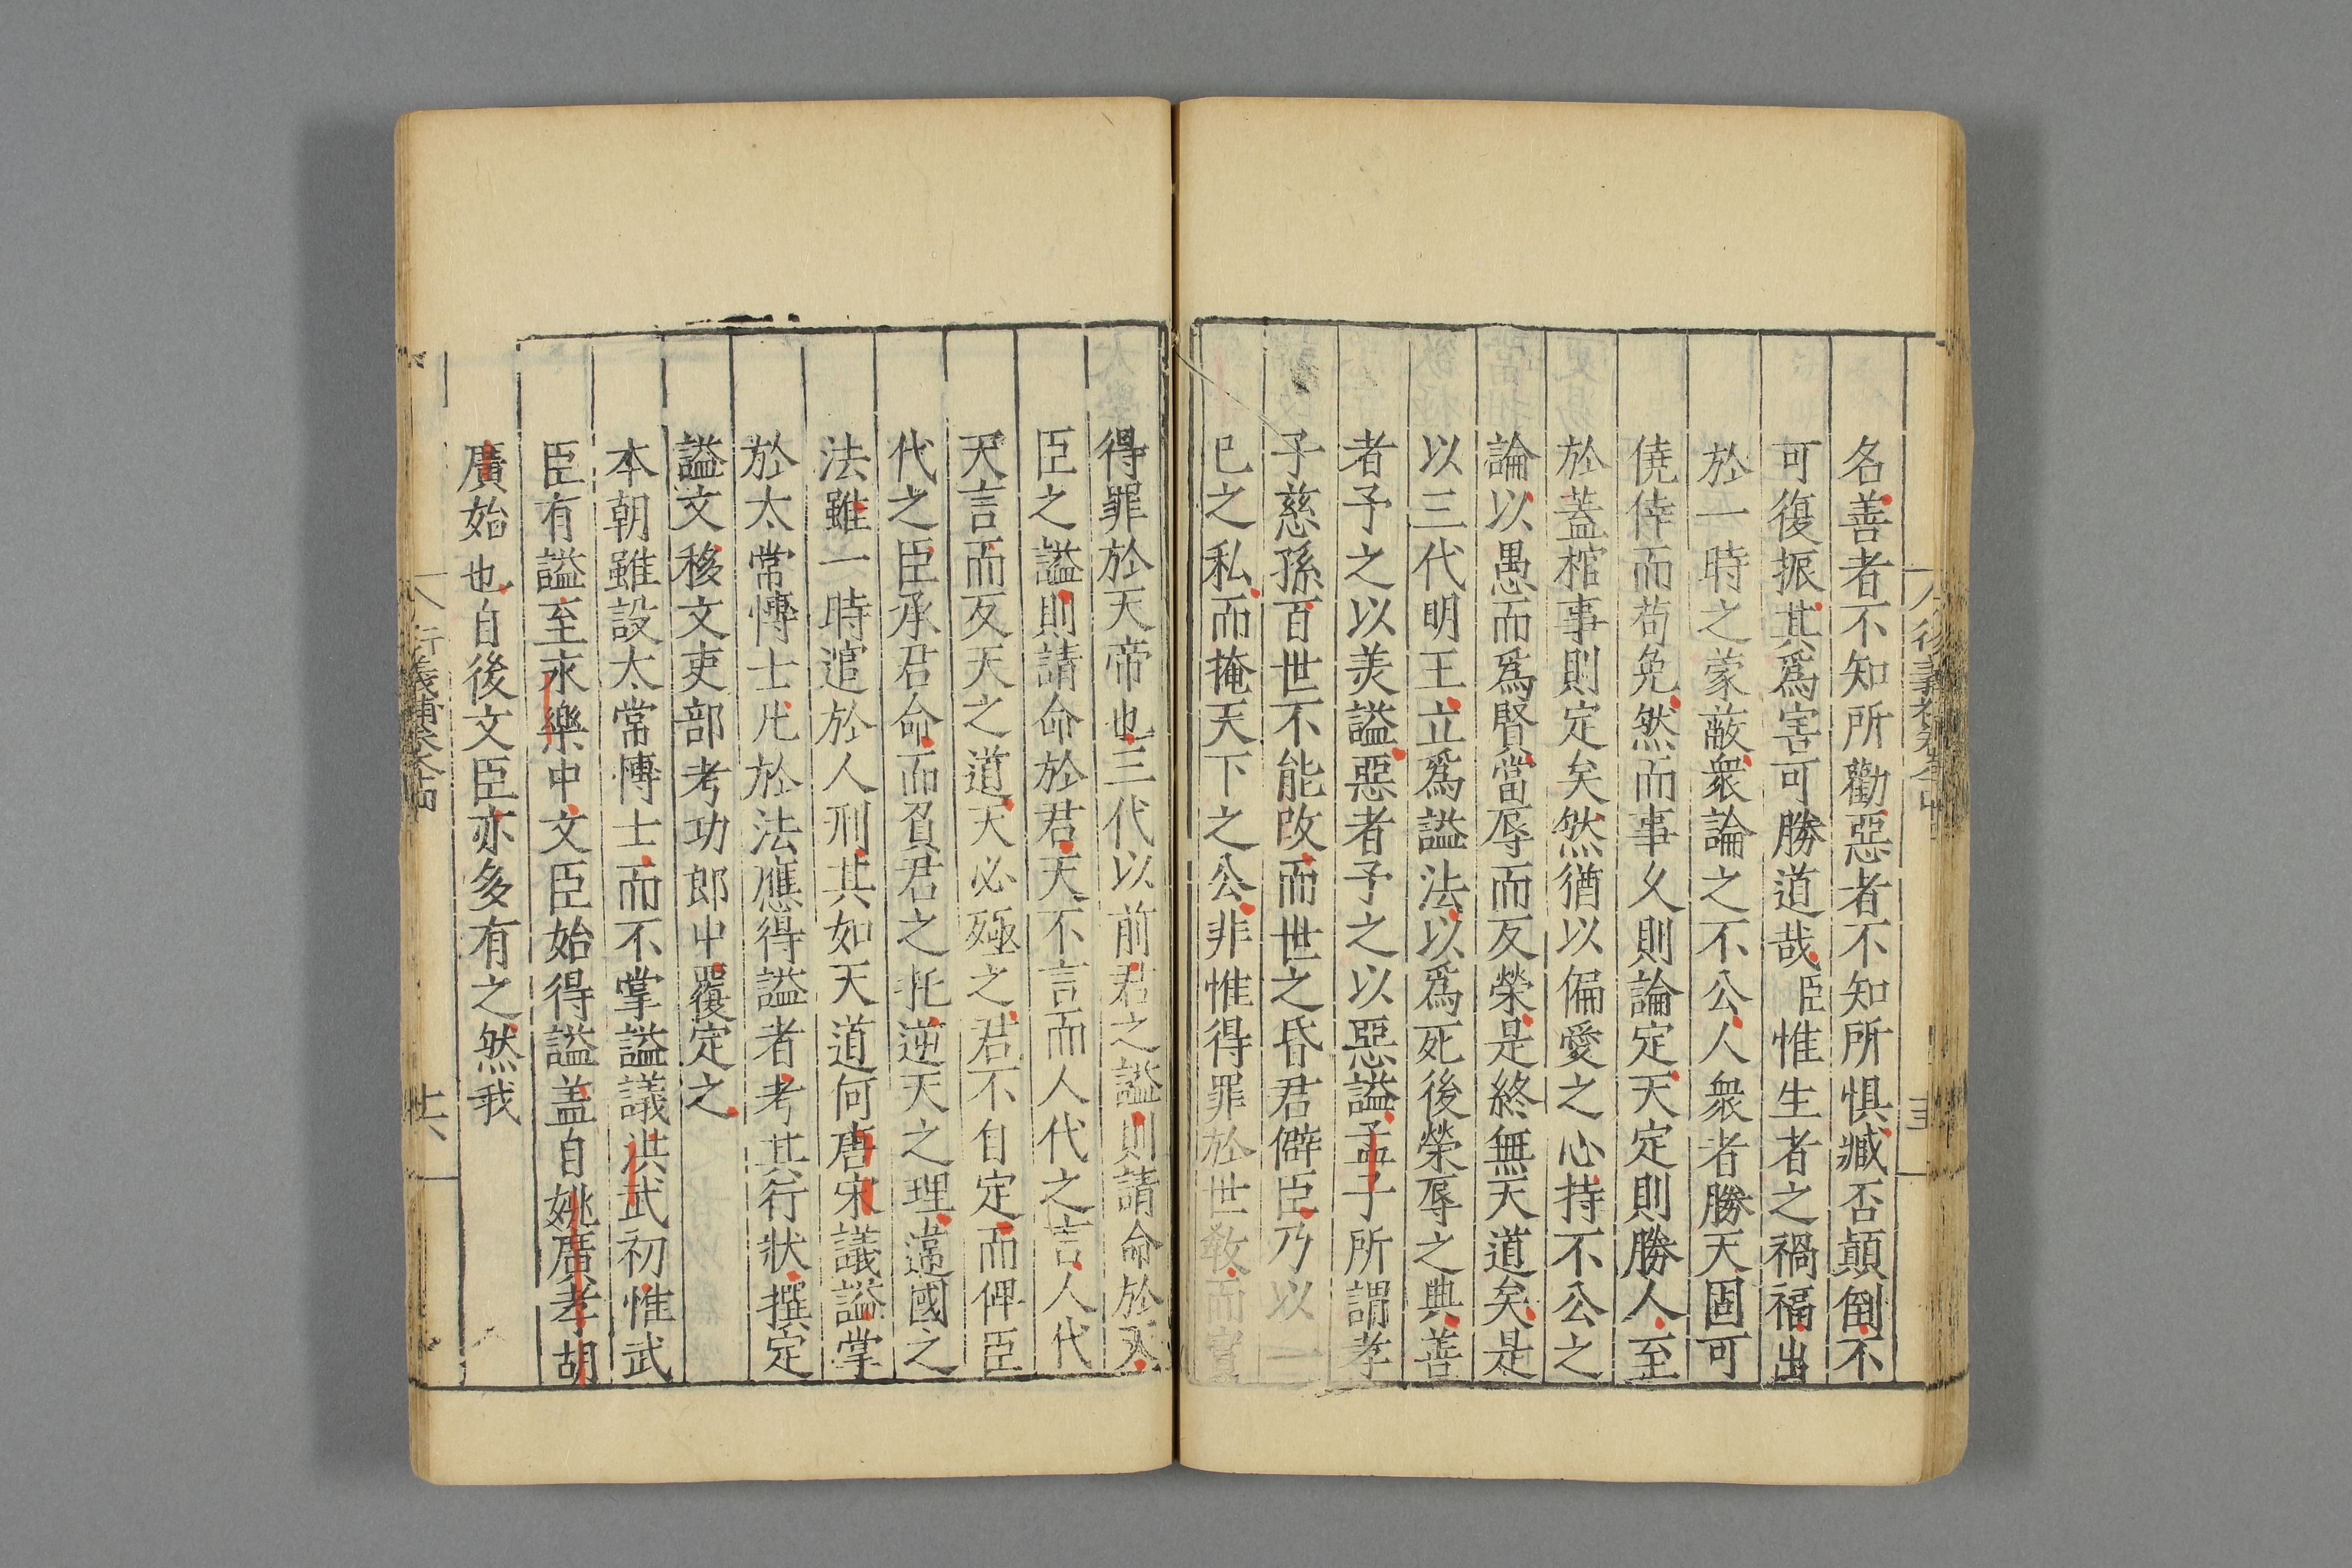 名善者不知所勸惡者不知所惧臧否顛倒不
可復振其爲害可勝道哉臣惟生者之禍福出
於一時之蒙蔽衆論之不公人衆者勝天固可
僥倖而苟免然而事乆則論定天定則勝人至
於蓋棺事則定矣然猶以偏愛之心持不公之
論以愚而爲賢當辱而反榮是終無天道矣是
以三代明王立爲謚法以爲死後榮辱之典善
者予之以羙謚惡者予之以惡謚孟子所謂孝
子慈孫百世不能改而世之昏君僻臣乃以一
已之私而掩天下之公非惟得罪於世敎而實
得罪於天帝也三代以前君之謚則請命於天
臣之謚則請命於君天不言而人代之言人代
天言而反天之道天必殛之君不自定而俾臣
代之臣承君命而負君之托逆天之理違國之
法雖一時逭於人刑其如天道何唐宋議謚掌
於太常博士凡於法應得謚者考其行狀撰定
謚文移文吏部考功郎中覆定之
本朝雖設太常博士而不掌謚議洪武初惟武
臣有謚至永樂中文臣始得謚盖自姚廣孝胡
廣始也自後文臣亦多有之然我